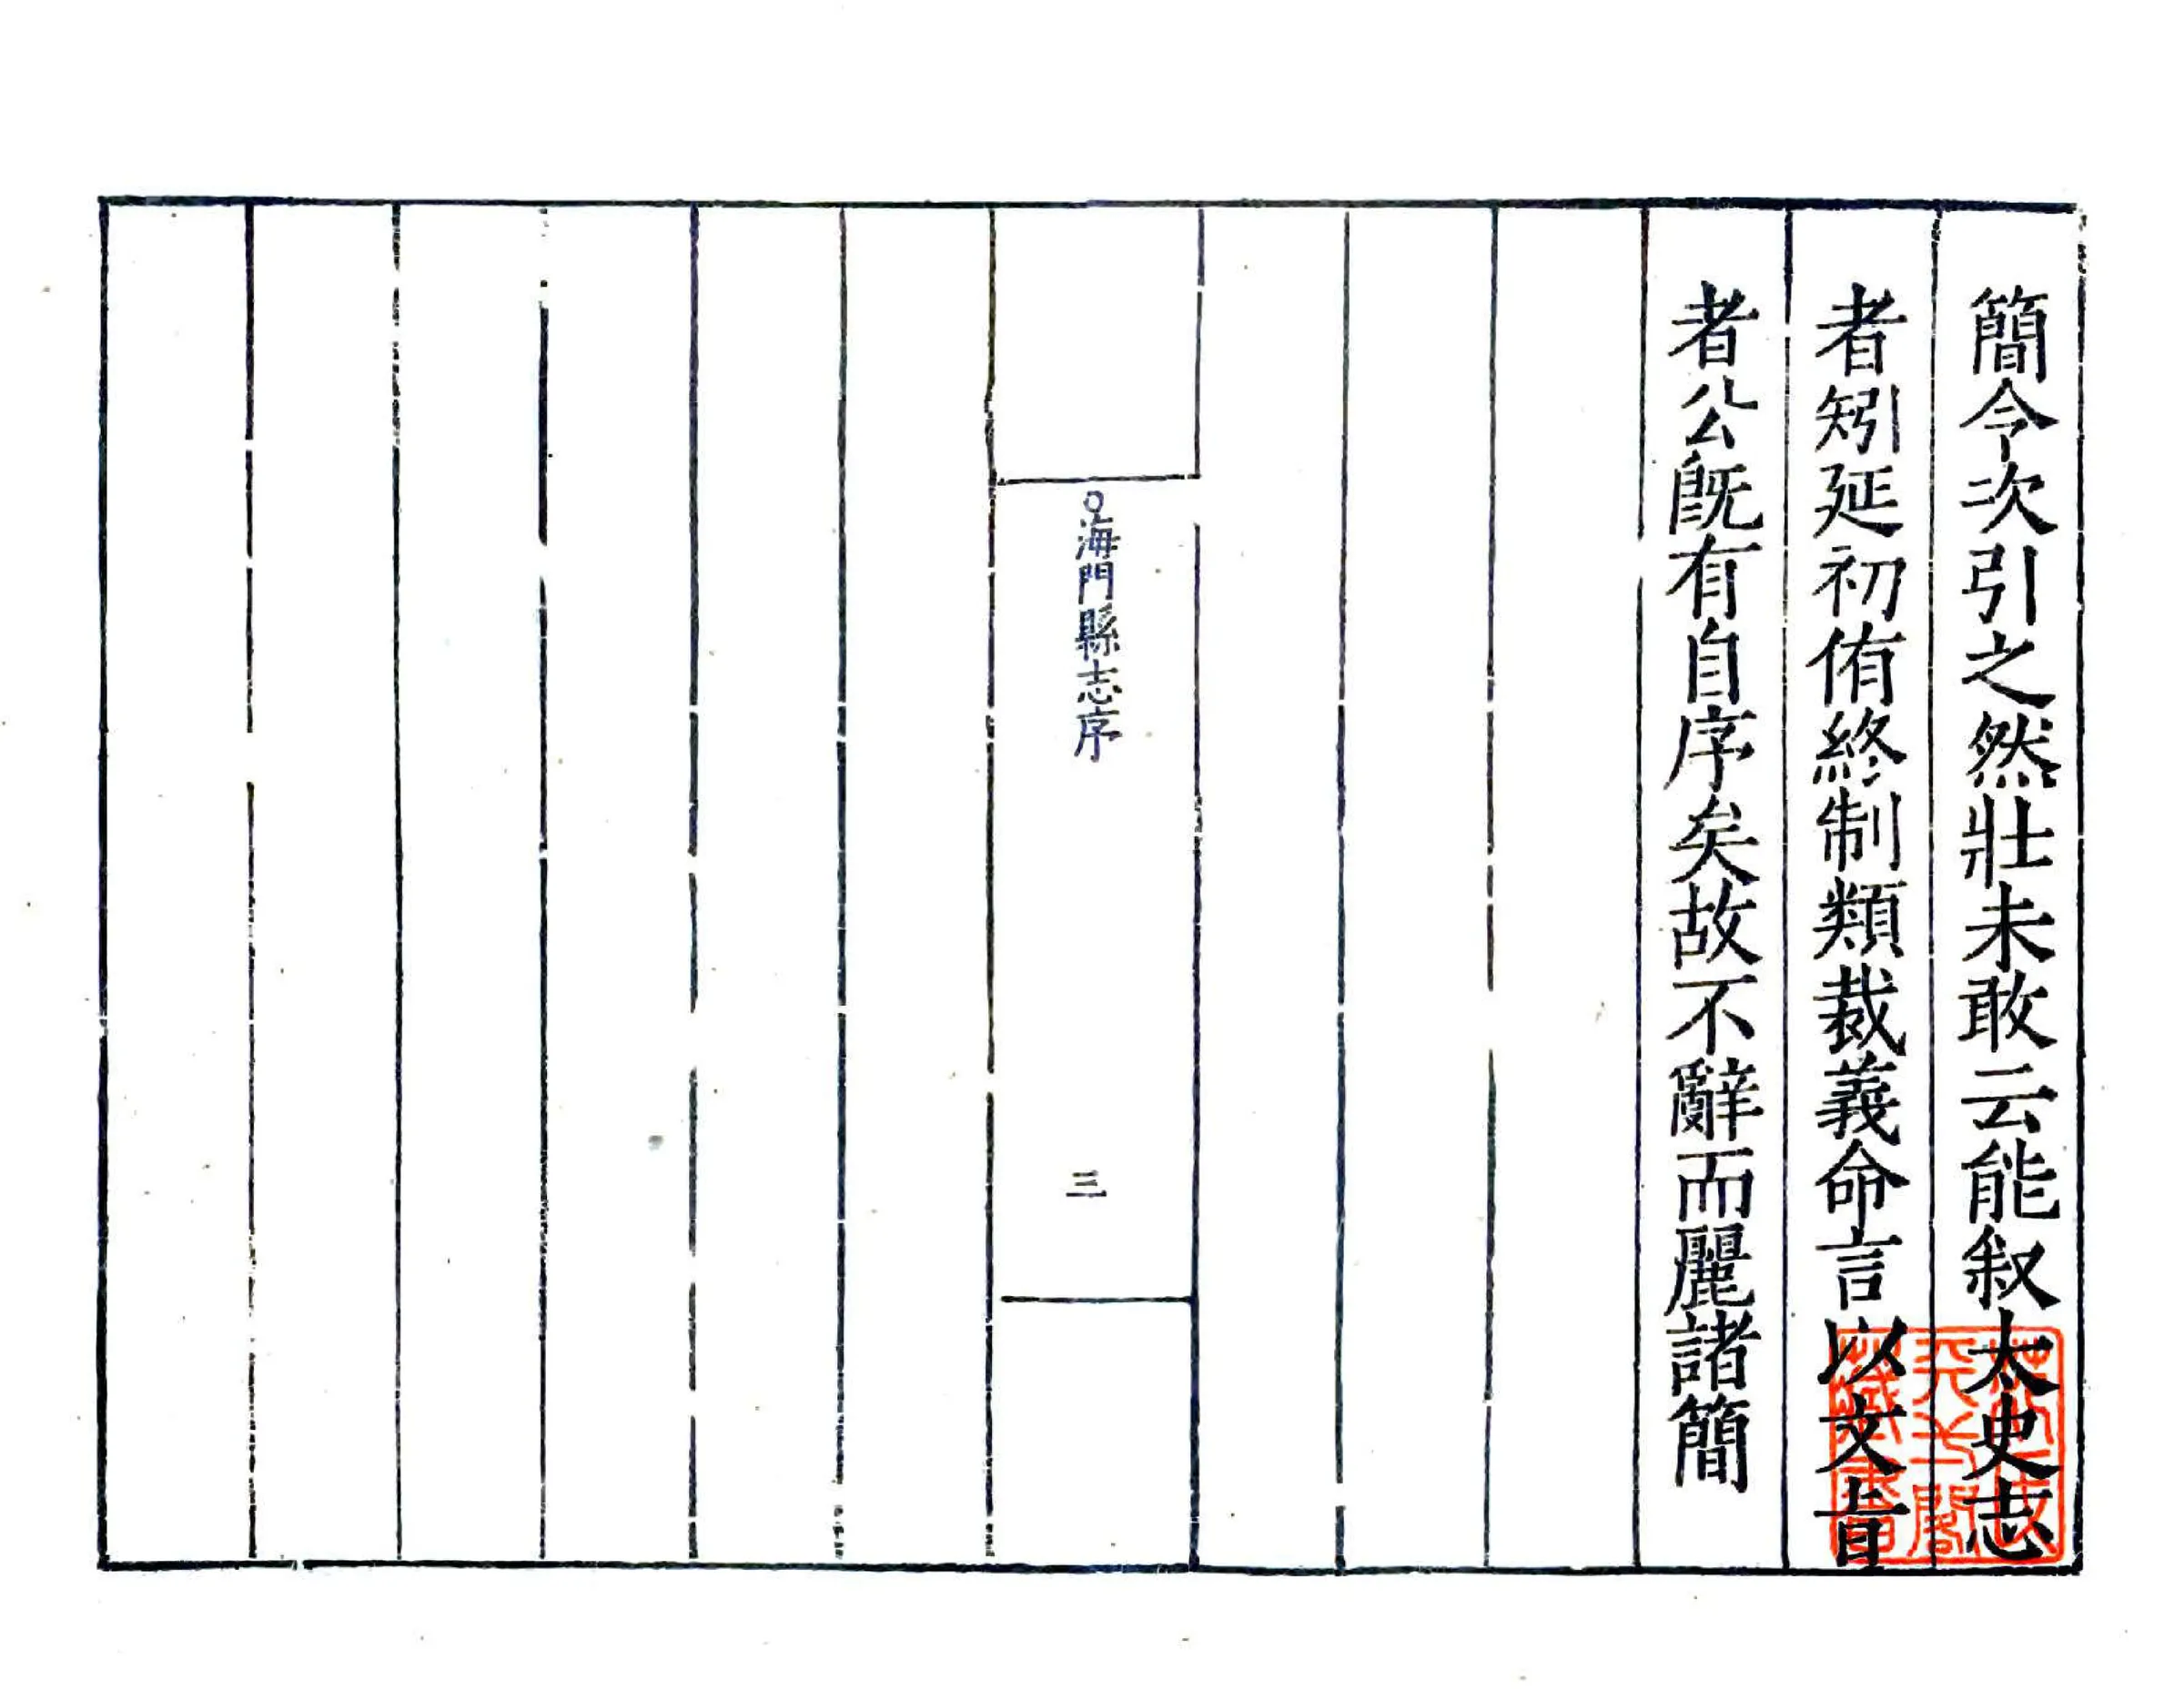 簡今次引之然壯未敢云能叙太史志
者矧延初侑終制類裁義命言以文旨
者公旣有自序矣故不辭而麗諸簡
海門縣志序
三